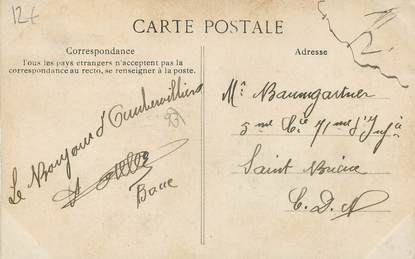 12€
CARTE POSTALE
Correspondance
Tous les pays étrangers n'acceptent pas la
correspondance au recto, se renseigner à la poste.
Adresse
Le Bonjour d'Aubervilliers
93
Mr Baumgartner
5me Cie 71me d'Inf
Saint Brieuc
C. D. N